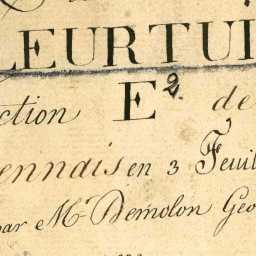 LEURTUI
ction E2. de
ennais en 3 Feuil
par Mr Demolon Geo